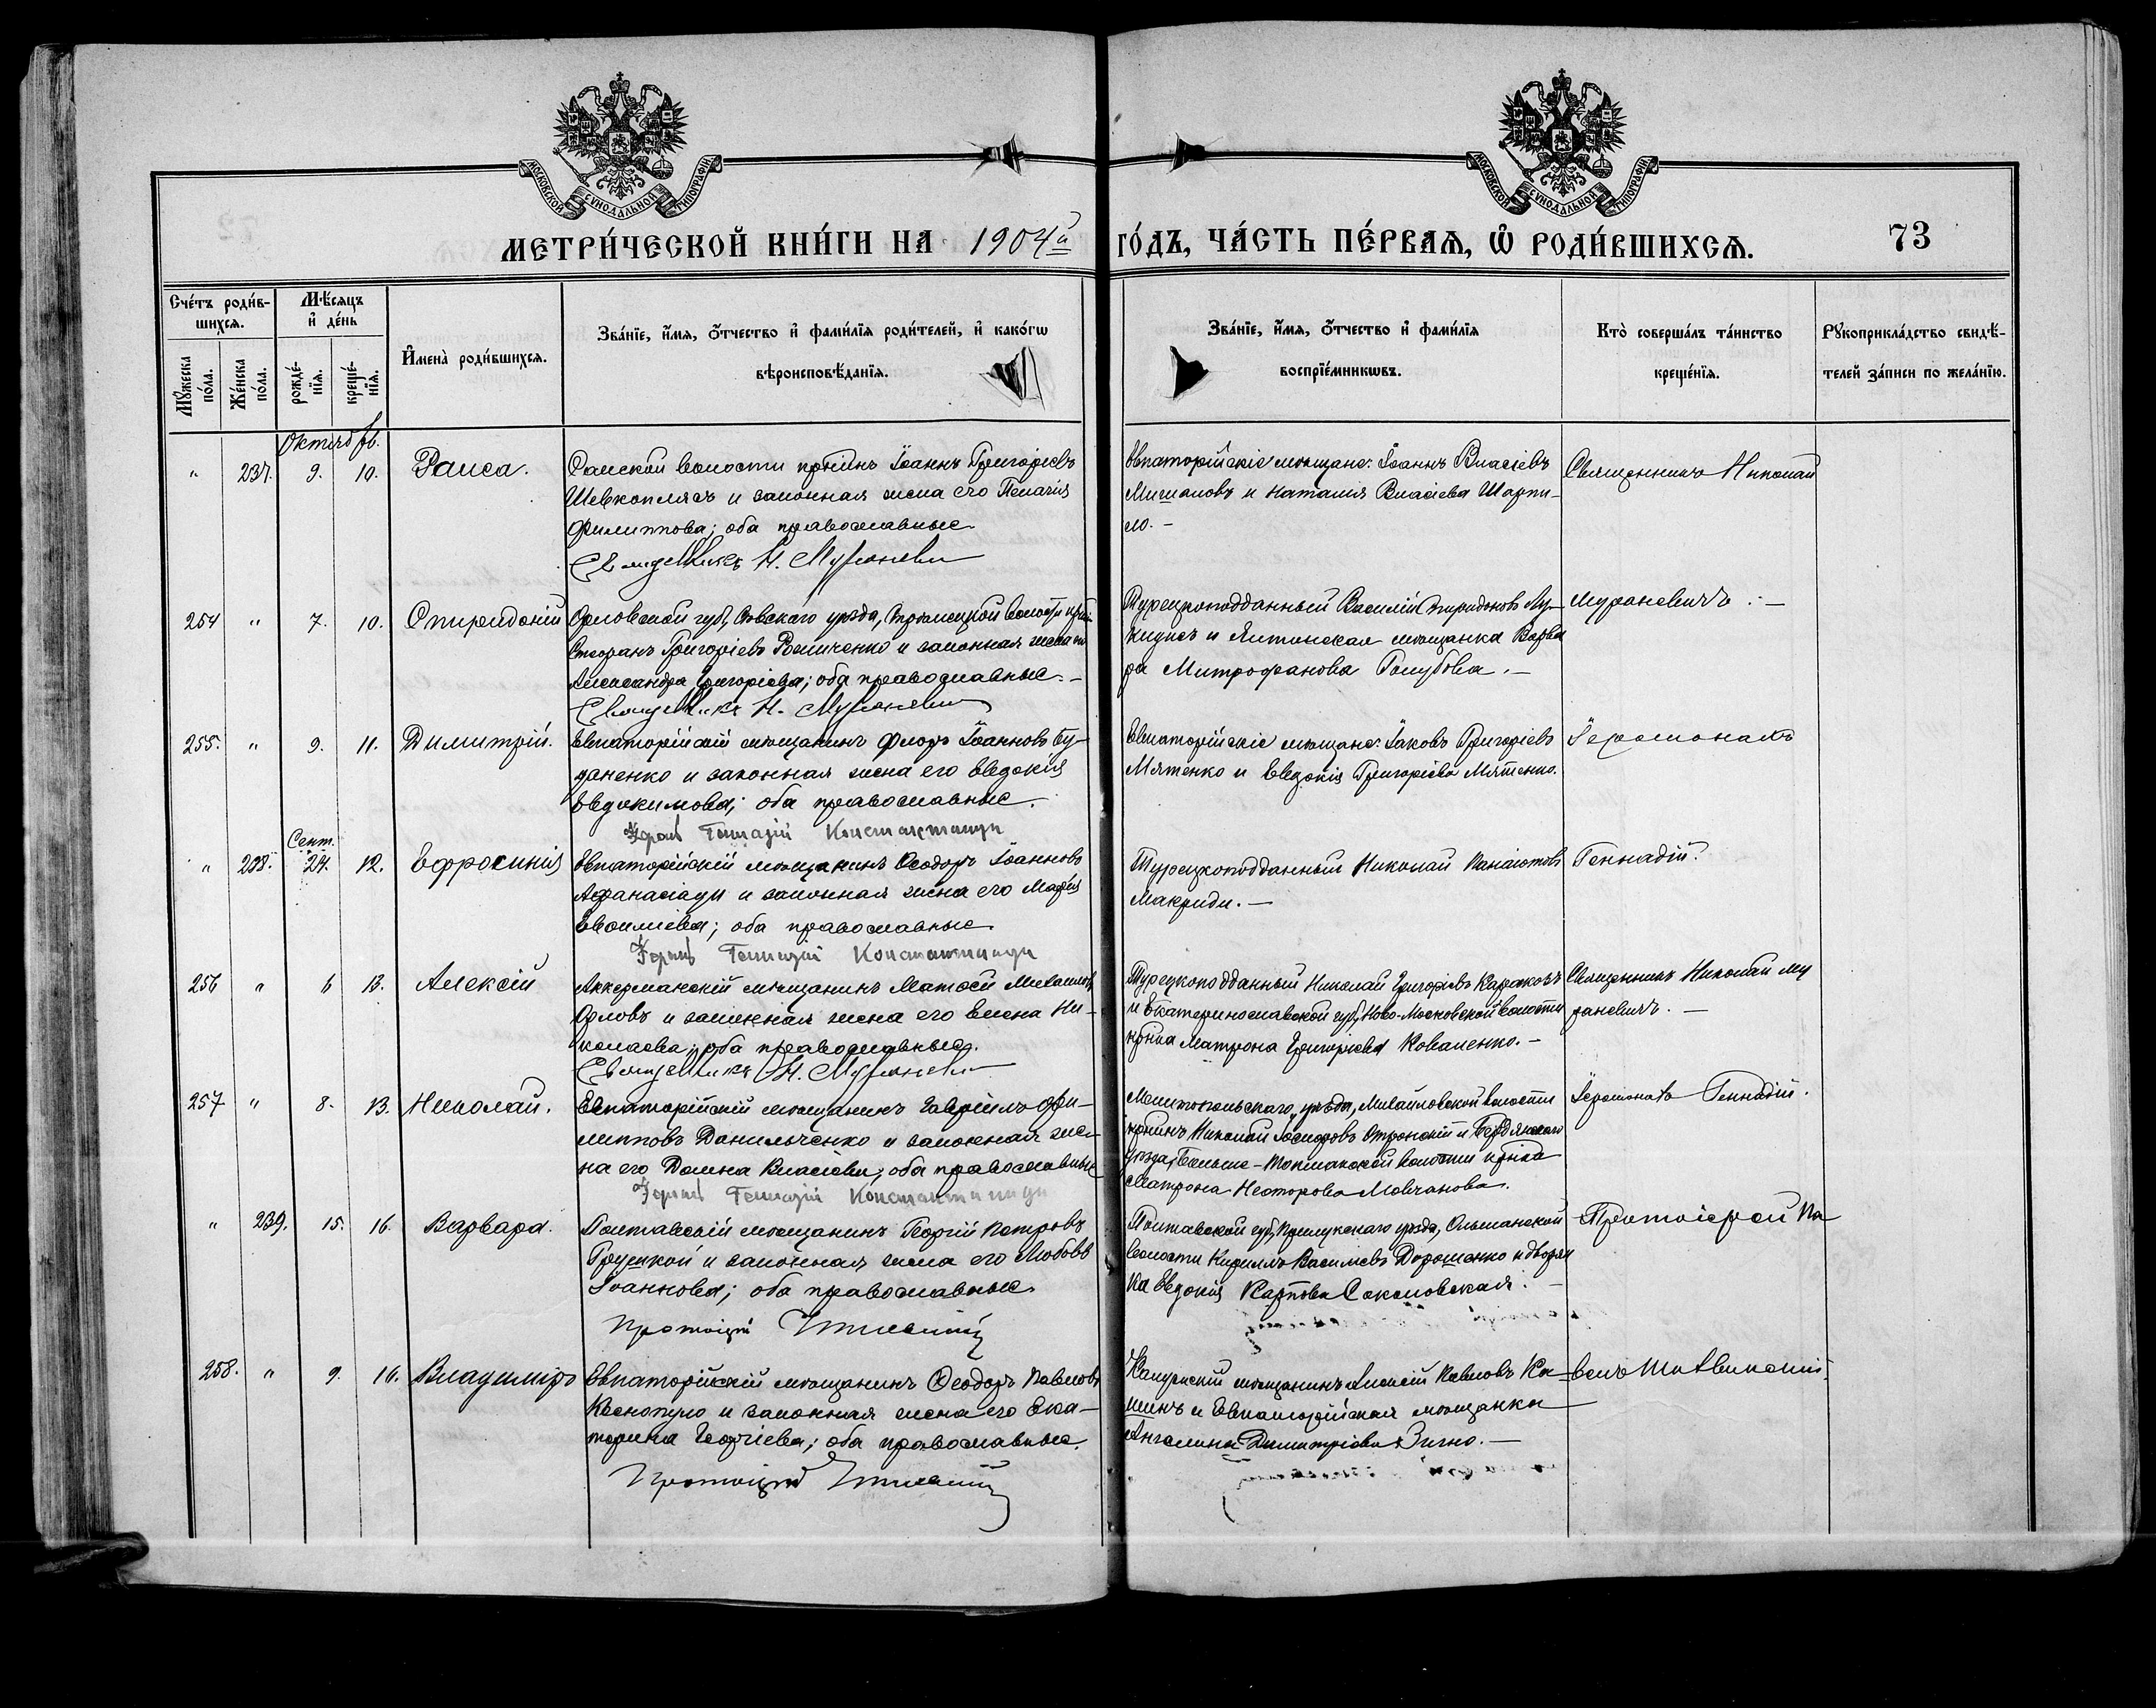 МОСКОВСКОЙ СѴНОДАЛЬНОЙ ТИПОГРАФІИ
МОСКОВСКОЙ СѴНОДАЛЬНОЙ ТИПОГРАФІИ
МЕТРИ́ЧЕСКОЙ КНИ́ГИ НА 1904й
ГО́ДЪ, ЧА́СТЬ ПЕ́РВАѦ, Ѡ҆ РОДИ́ВШИХСѦ. 73
Сче́тъ роди́в-
шихсѧ.
Мꙋ́жеска по́ла.
Же́нска по́ла.
Мѣ́сѧцъ
и҆ де́нь
рожде́-нїѧ.
креще́-нїѧ.
И҆мена̀ роди́вшихсѧ.
Зва́нїе, и҆́мѧ, ѻ҆́тчество и҆ фами́лїѧ роди́телей, и҆ како́гѡ
вѣроисповѣ́данїѧ.
Зва́нїе, и҆́мѧ, ѻ҆́тчество и҆ фами́лїѧ
воспрїе́мникѡвъ.
Кто̀ соверша́лъ та́инство
креще́нїѧ.
Рꙋкоприкла́дство свидѣ́-
телей за́писи по жела́нїю.
Октябрь.
" 237. 9. 10. Раиса.
Сакской волости кр-нинъ Іоаннъ Григоріевъ
Шевкоплясъ и законная жена его Пелагія
Филиппова; оба православные.
Священникъ Н. Мураневичъ
Евпаторійскіе мѣщане: Іоаннъ Власіевъ
и Наталія Власіева Шарпи-
ло. -
Священникъ Николай
254 " 7. 10. Спиридоній
Орловской губ., Сѣвскаго уѣзда, волости кр-нинъ
Стефанъ Григоріевъ и законная жена его
Александра Григоріева; оба православные. -
Священникъ Н. Мураневичъ
Турецкоподданный Василій Спиридоновъ
и Ялтинская мѣщанка Варва
ра Митрофанова Голубова. -
Мураневичъ. -
255. " 9. 11. Димитрій.
Евпаторійскій мѣщанинъ Флоръ Іоанновъ Гу-
даненко и законная жена его Евдокія
Евдокимова; оба православные.
Іером. Геннадій Константиниди
Евпаторійскіе мѣщане: Іаковъ Григоріевъ
Мятенко и Евдокія Григоріева Мятенко.
Іеромонахъ
Сент.
" 238. 24. 12. Ефросинія
Евпаторійскій мѣщанинъ Ѳеодоръ Іоанновъ
Афанасіади и законная жена его Марія
оба православные
Іером. Геннадій Константиниди
Турецкоподданный Николай Панаіотовъ
Макриди. -
Геннадій.
256 " 6 13. Алексій
Аккерманскій мѣщанинъ Матѳей Михаиловъ
Орловъ и законная жена его Елена Ни-
колаева; оба православные.
Священникъ Н. Мураневичъ
Турецкоподданный Николай Григоріевъ Каракозъ
и Екатеринославской губ., Ново-Московской волости
кр-нка Матрона Григоріева Коваленко. -
Священникъ Николай Му
раневичъ. -
257 " 8. 13. Николай.
Евпаторійскій мѣщанинъ Гавріилъ Фи-
липповъ Данильченко и законная же-
на его Домна Власіева; оба православные
Іером. Геннадій Константиниди
Мелитопольскаго уѣзда, Михайловской волости
кр-нинъ Николай и Бердянскаго
уѣзда, Больше-Токмакской волости кр-нка
Матрона Несторова Мовчанова.
Іеромонахъ Геннадій.
" 239. 15. 16. Варвара.
Полтавскій мѣщанинъ Георгій Петровъ
и законная жена его Любовь
Іоаннова; оба православные.
Протоіерей
Полтавской губ., Прилукскаго уѣзда, Ольшанской
волости Кириллъ Василіевъ Дорошенко и дворян
ка Евдокія Карпова Соколовская. -
Протоіерей Па
258. " 9. 16. Владиміръ
Евпаторійскій мѣщанинъ Ѳеодоръ Павловъ
и законная жена его Ека-
терина Георгіева; оба православные.
Протоіерей
мѣщанинъ Алексій Павловъ Ка-
шинъ и Евпаторійская мѣщанка
Ангелина Димитріева Зигно. -
велъ